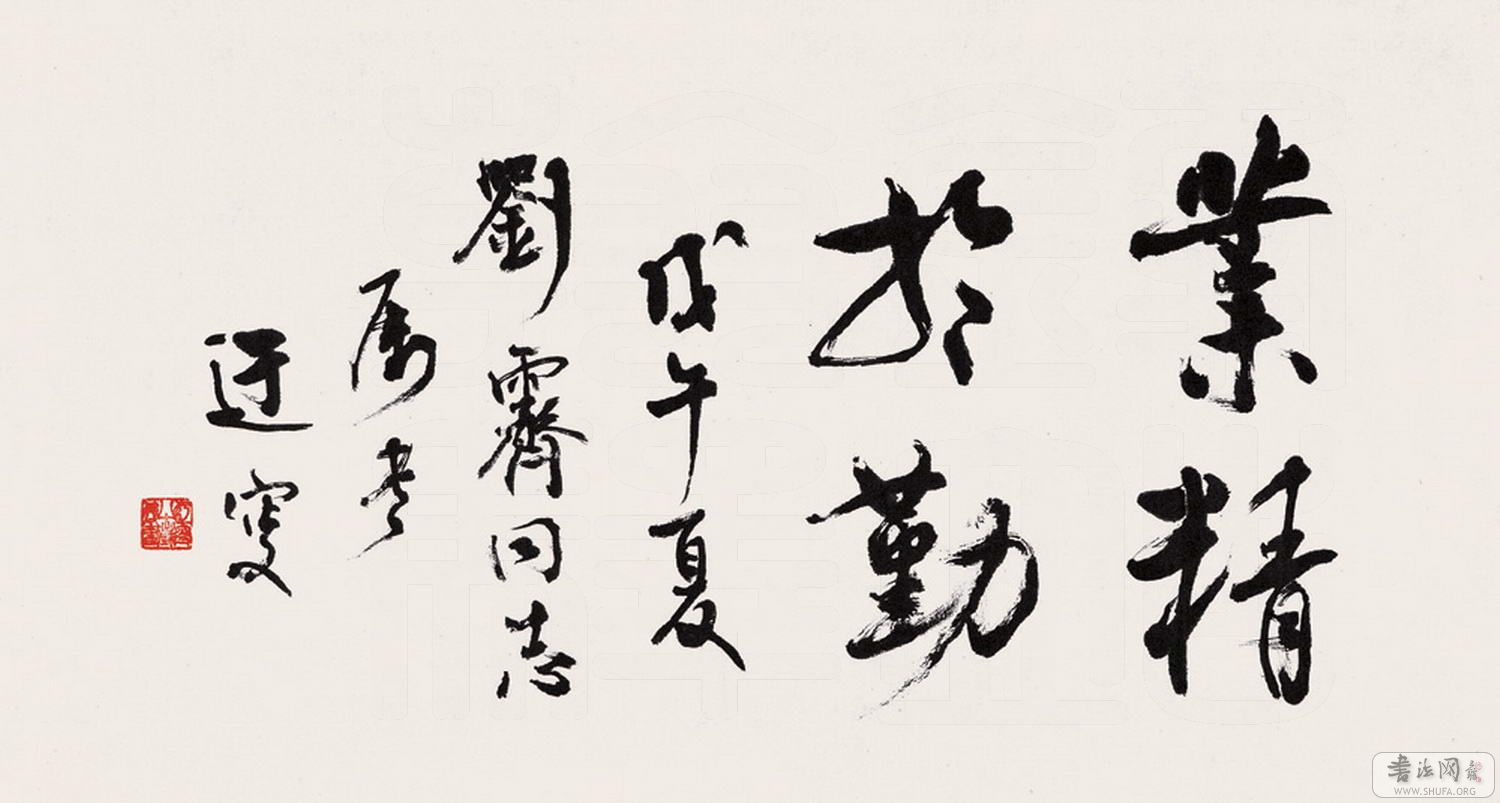 業精
於勤
戊午夏
劉霽同志
属書
迂叟
书法网
WWW.SHUFA.ORG